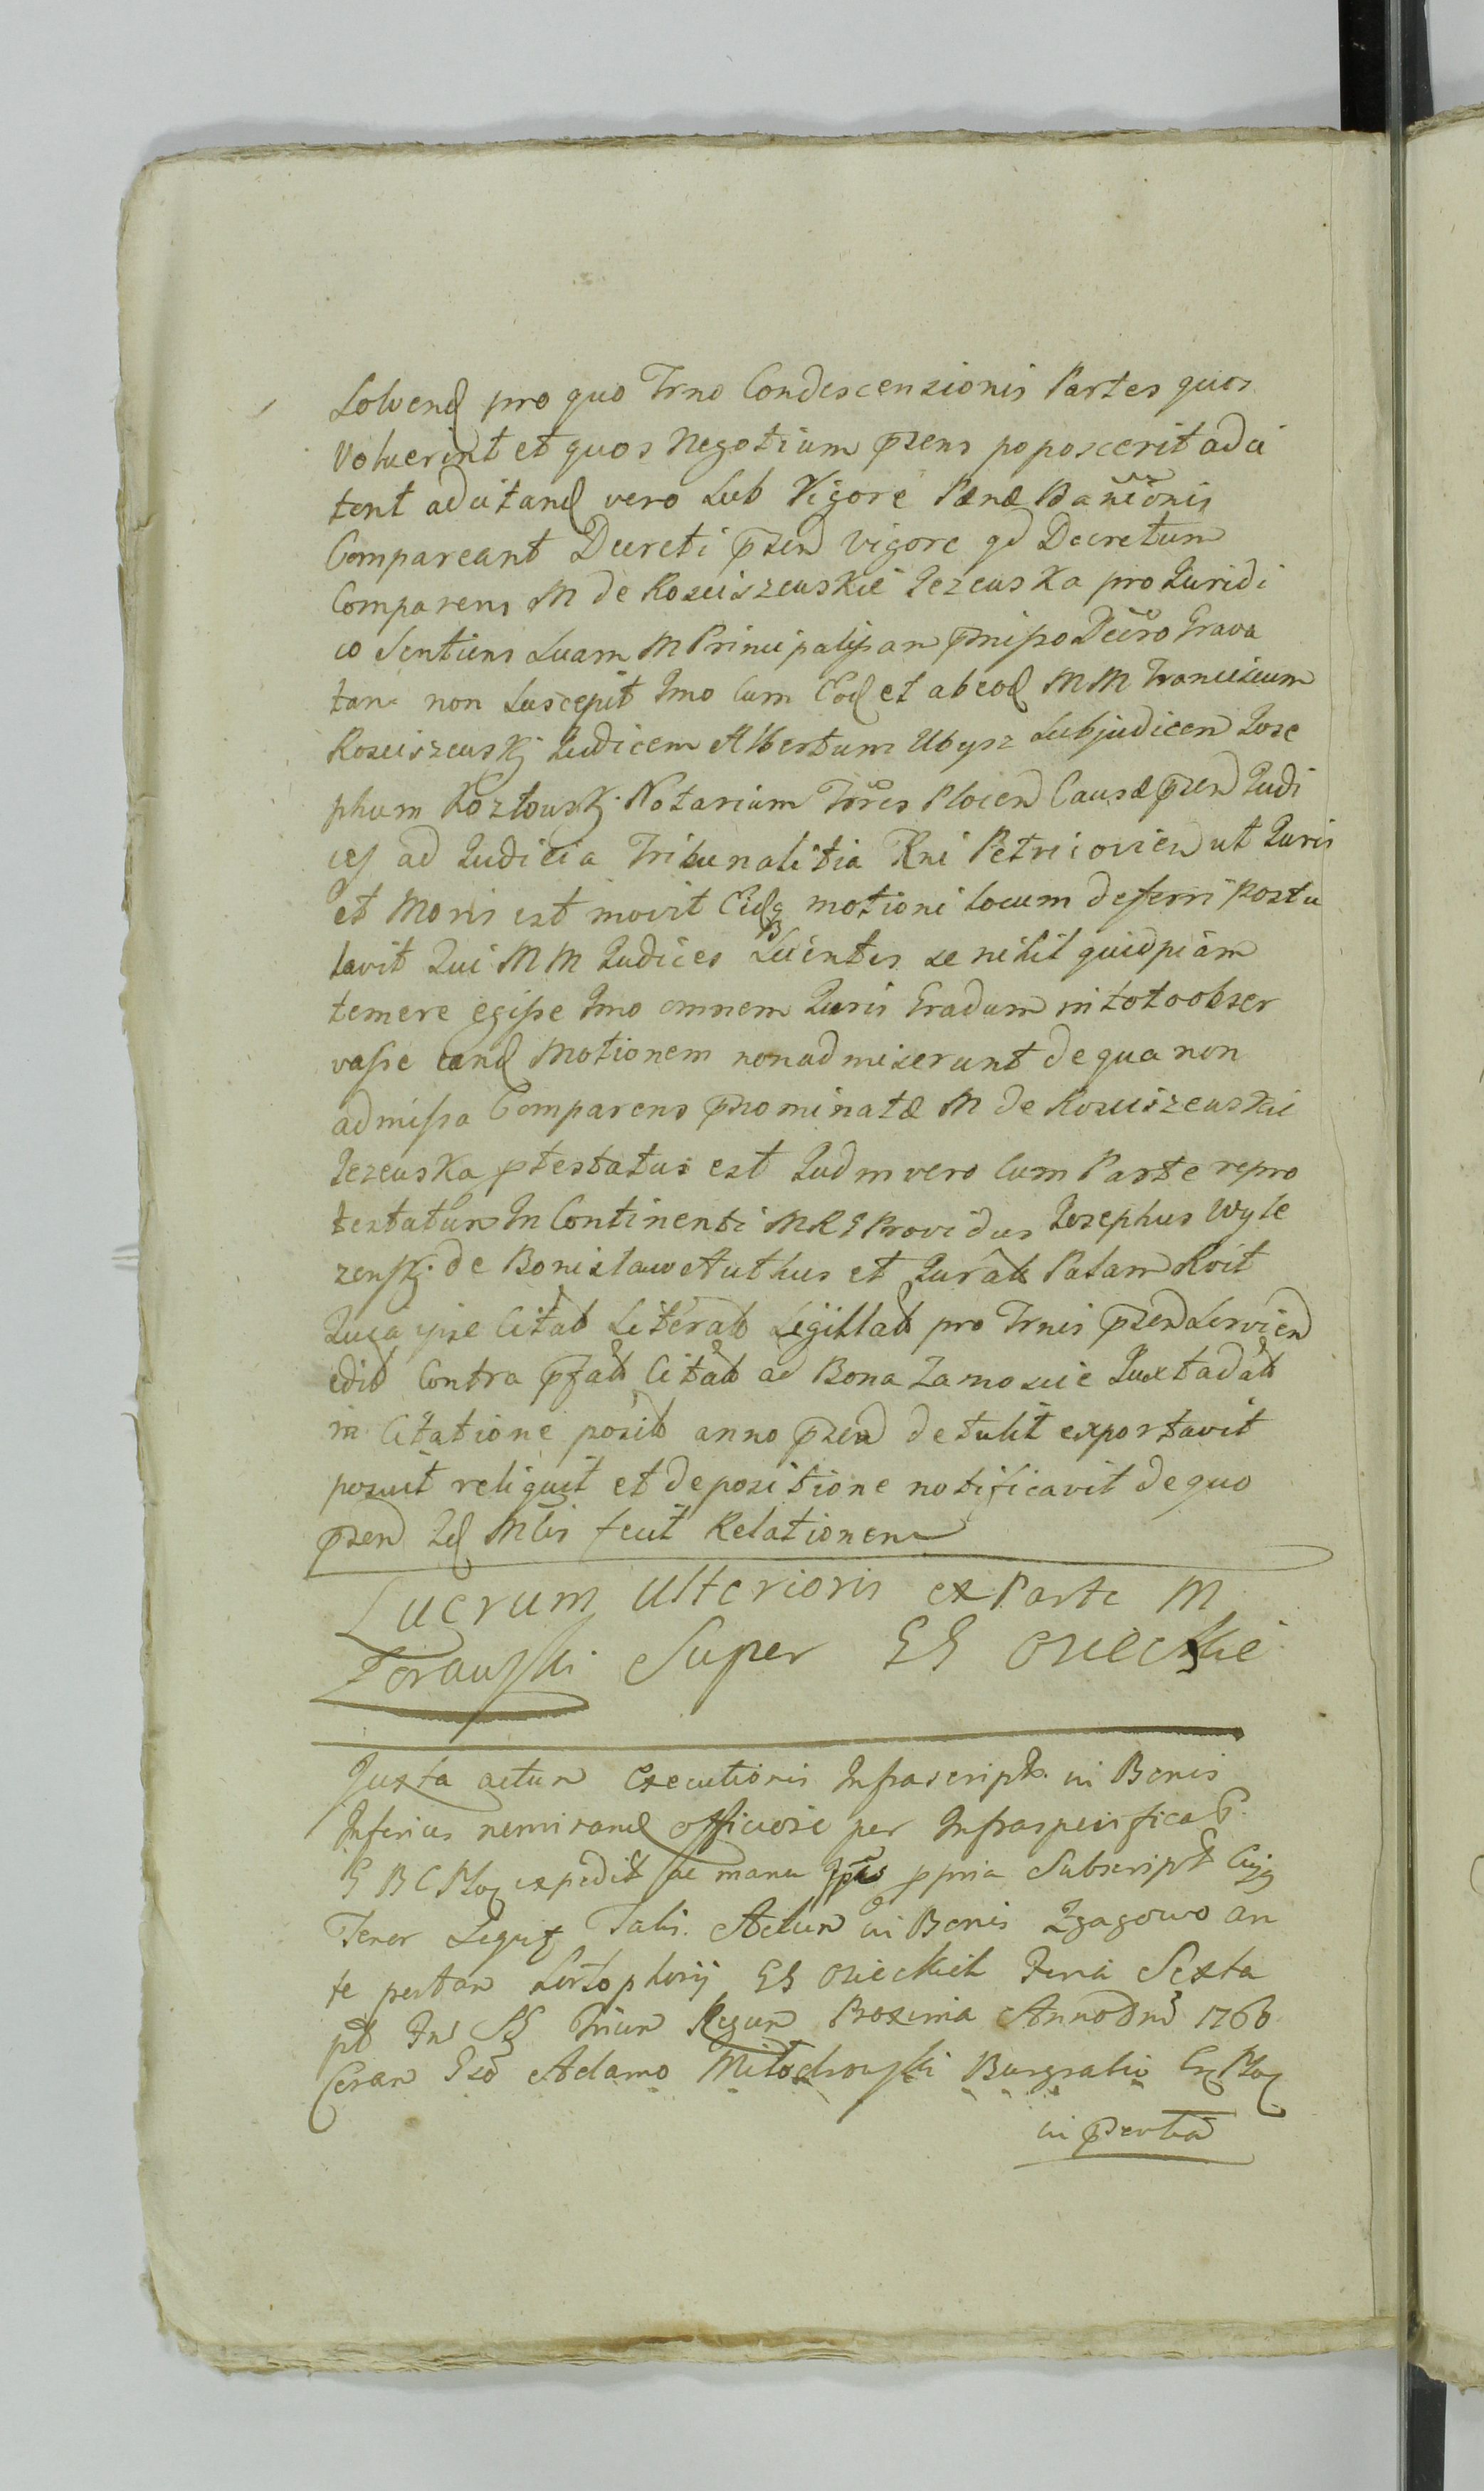 Solvend pro quo Trno Condescensionis Partes quos
Voluerint et quos Negotium prens poposcerit adci
tent adcitand vero Sub Vigore Pænæ Banicionis
Compareant Decreti prsen Vigore qd Decretum
Comparens M de Kosciszewskie Jezewska pro Juridi
co Sentiens Suam M Principalissam pmisso Dccro Grava
tam non Suscepit Imo Cum Eod et ab eod MM Franciscum
Rosciszewskj Judicem Albertum Ubysz Subjudicem Jose
phum Kozłowskj Notarium Trres Plocen Causæ prsen Judi
ces ad Judicia Tribunalitia Rni Petricovien ut Juris
et Moris est movit Eidq motioni locum deferri Postu
lavit Qui MM Judices Scientes se nihil quidpiam
temere egisse Imo omnem Juris Gradum in toto obser
vasse eand Motionem non admiserunt de qua non
admissa Comparens prnominatæ M de Rosciszewskie
Jezewska ptestatus est Judm vero Cum Parte repro
testatur In Continenti MRG Providus Josephus Wyle
zenskj de Bonislaw Authus et Jurats Palam Rvit
Quia ipse Citatt Literatt Sigillatt pro Trnis prsen Servien
edit Contra pfatt Citatt ad Bona Zamoscie Juxta datt
in Citatione posit anno prsen detulit exportavit
posuit reliquit et depositione notificavit de quo
prsen Jud Mtris fecit Relationem
Lucrum Ulterioris ex Parte M
Zorawski Super GG Osieckie
Juxta actum Executionis Infrascript in Bonis
Inferius nemirand officiose per Infraspecificat
G B C Ploc expedit ac manu Ipius ppria Subscript Cujq
Tenor Sequitq Talis. Actum in Bonis Zgagowo an
te portam Fortophorij GG Osieckich Feria Sexta
pt Fns SS Trium Regum Proxima Anno Dni 1766
Coram Gso Adamo Miłodrowski Burgrabio Cr Ploc
in prsentia